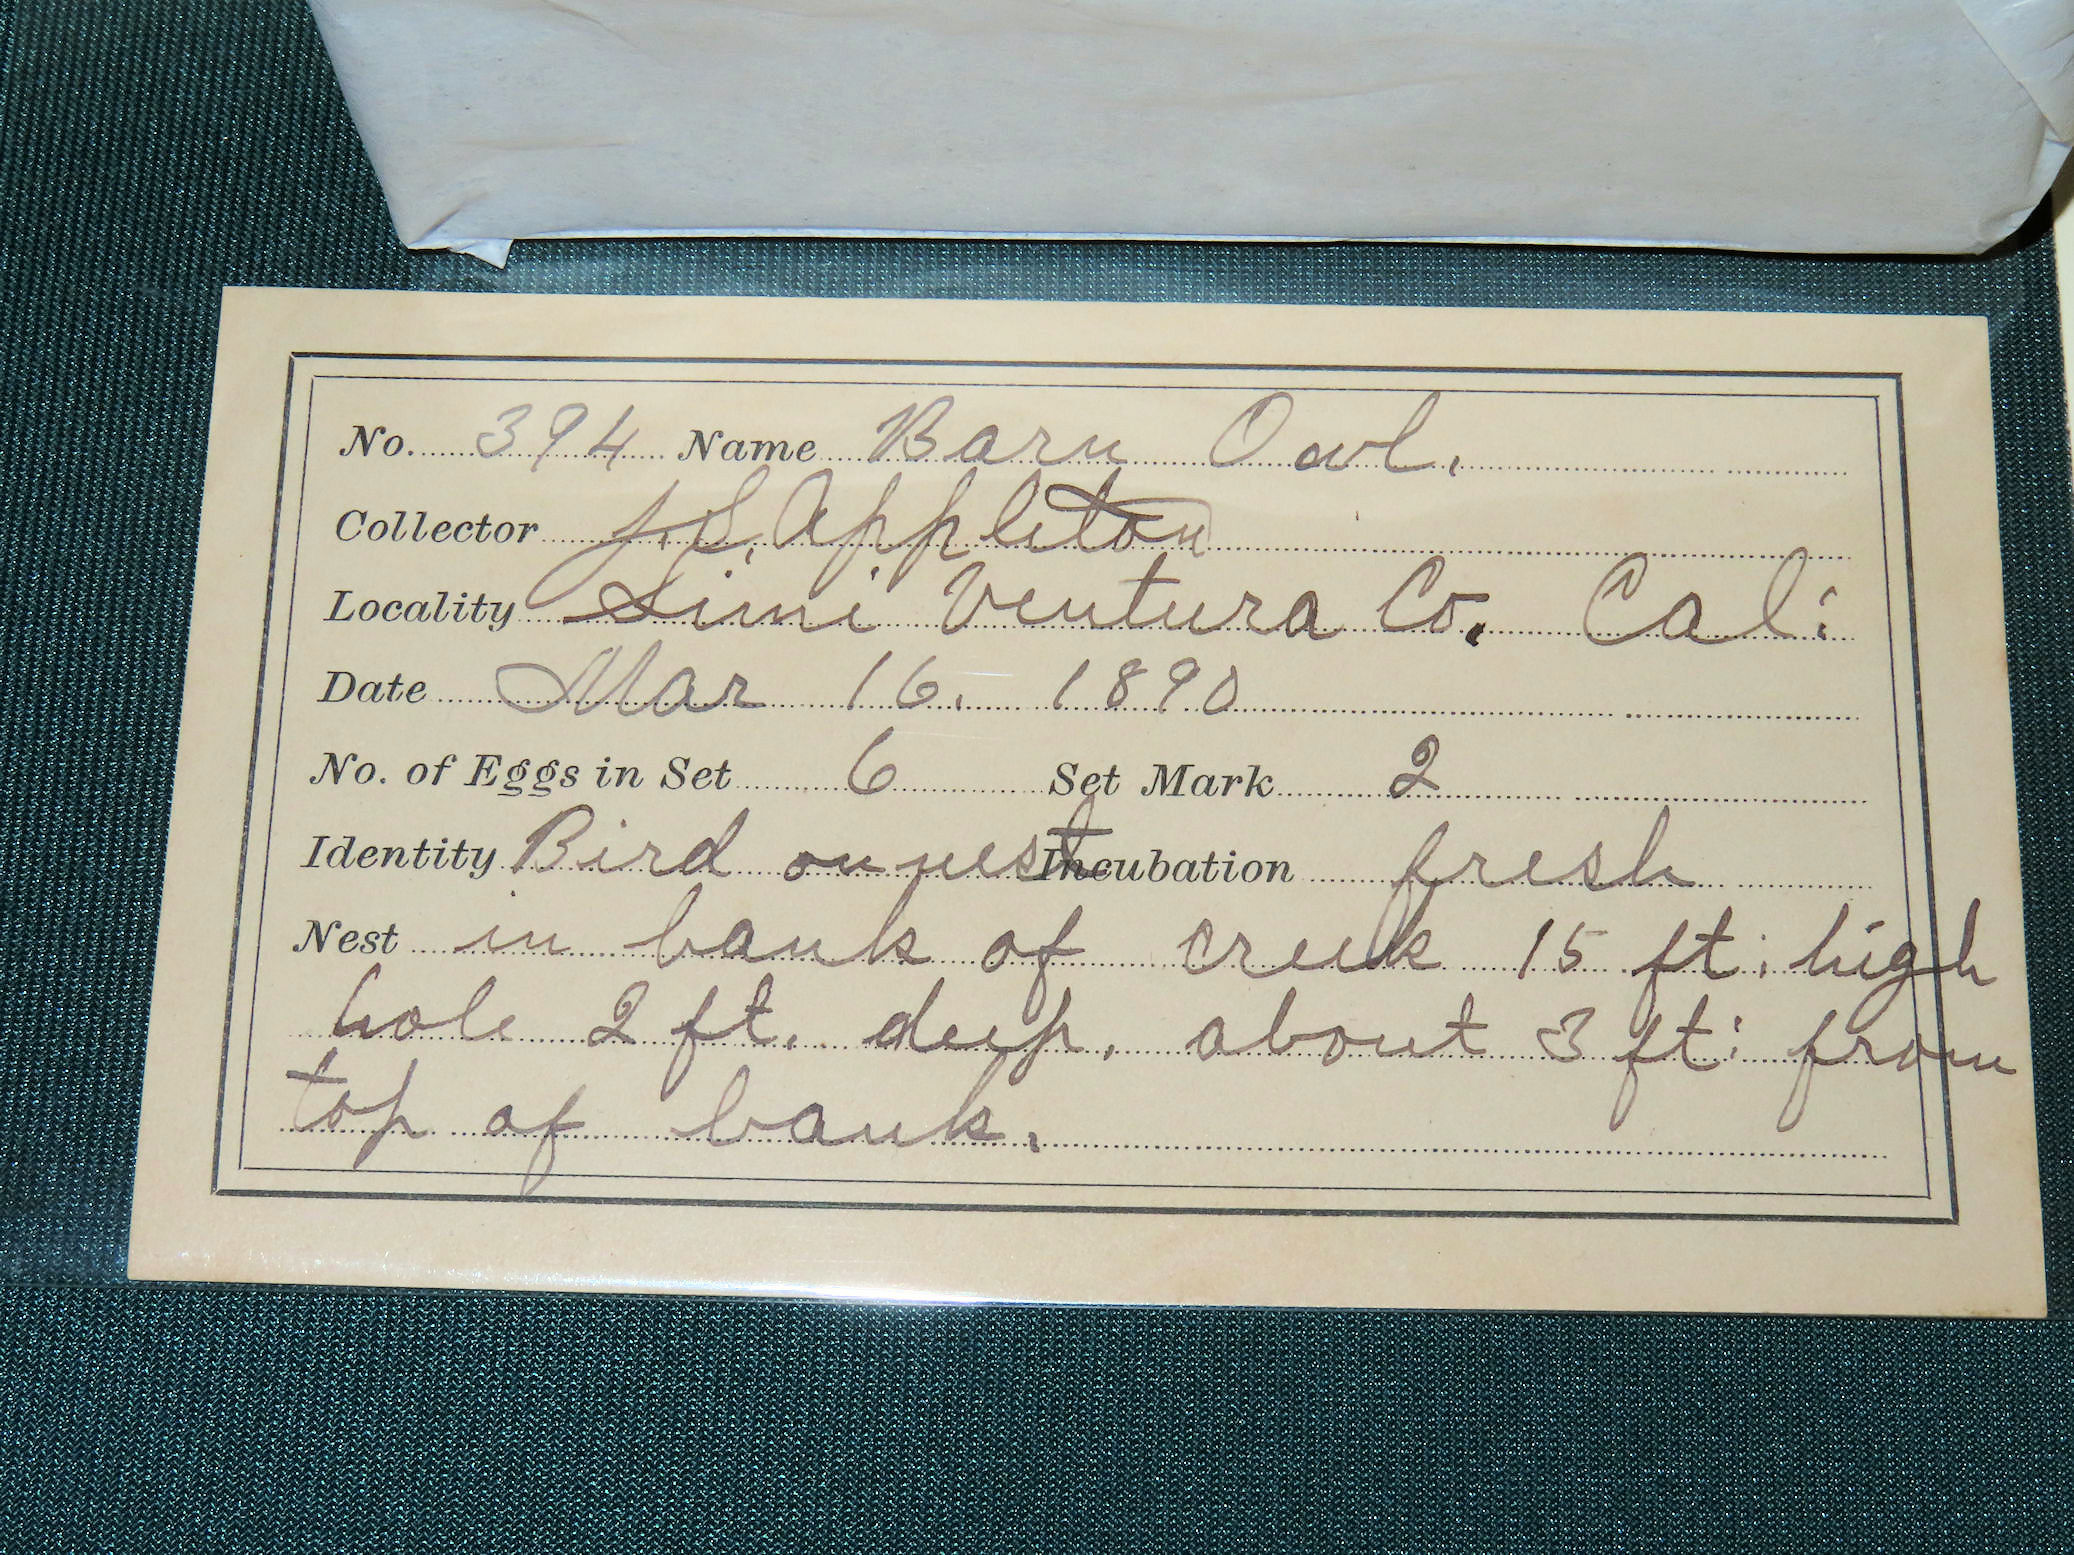 No. 394 Name Barn Owl.
Collector J. S. Appleton
Locality Simi Ventura Co. Cal:
Date Mar 16. 1890
No. of Eggs in Set 6 Set Mark 2
Identity Bird on nest Incubation fresh
Nest in bank of creek 15 ft: high
hole 2 ft. deep. about 3 ft: from
top of bank.